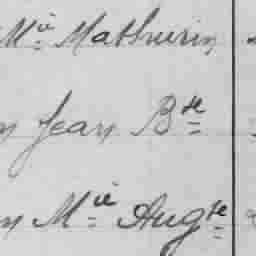 Mie Mathurin
n Jean Bte
n Mie Augte